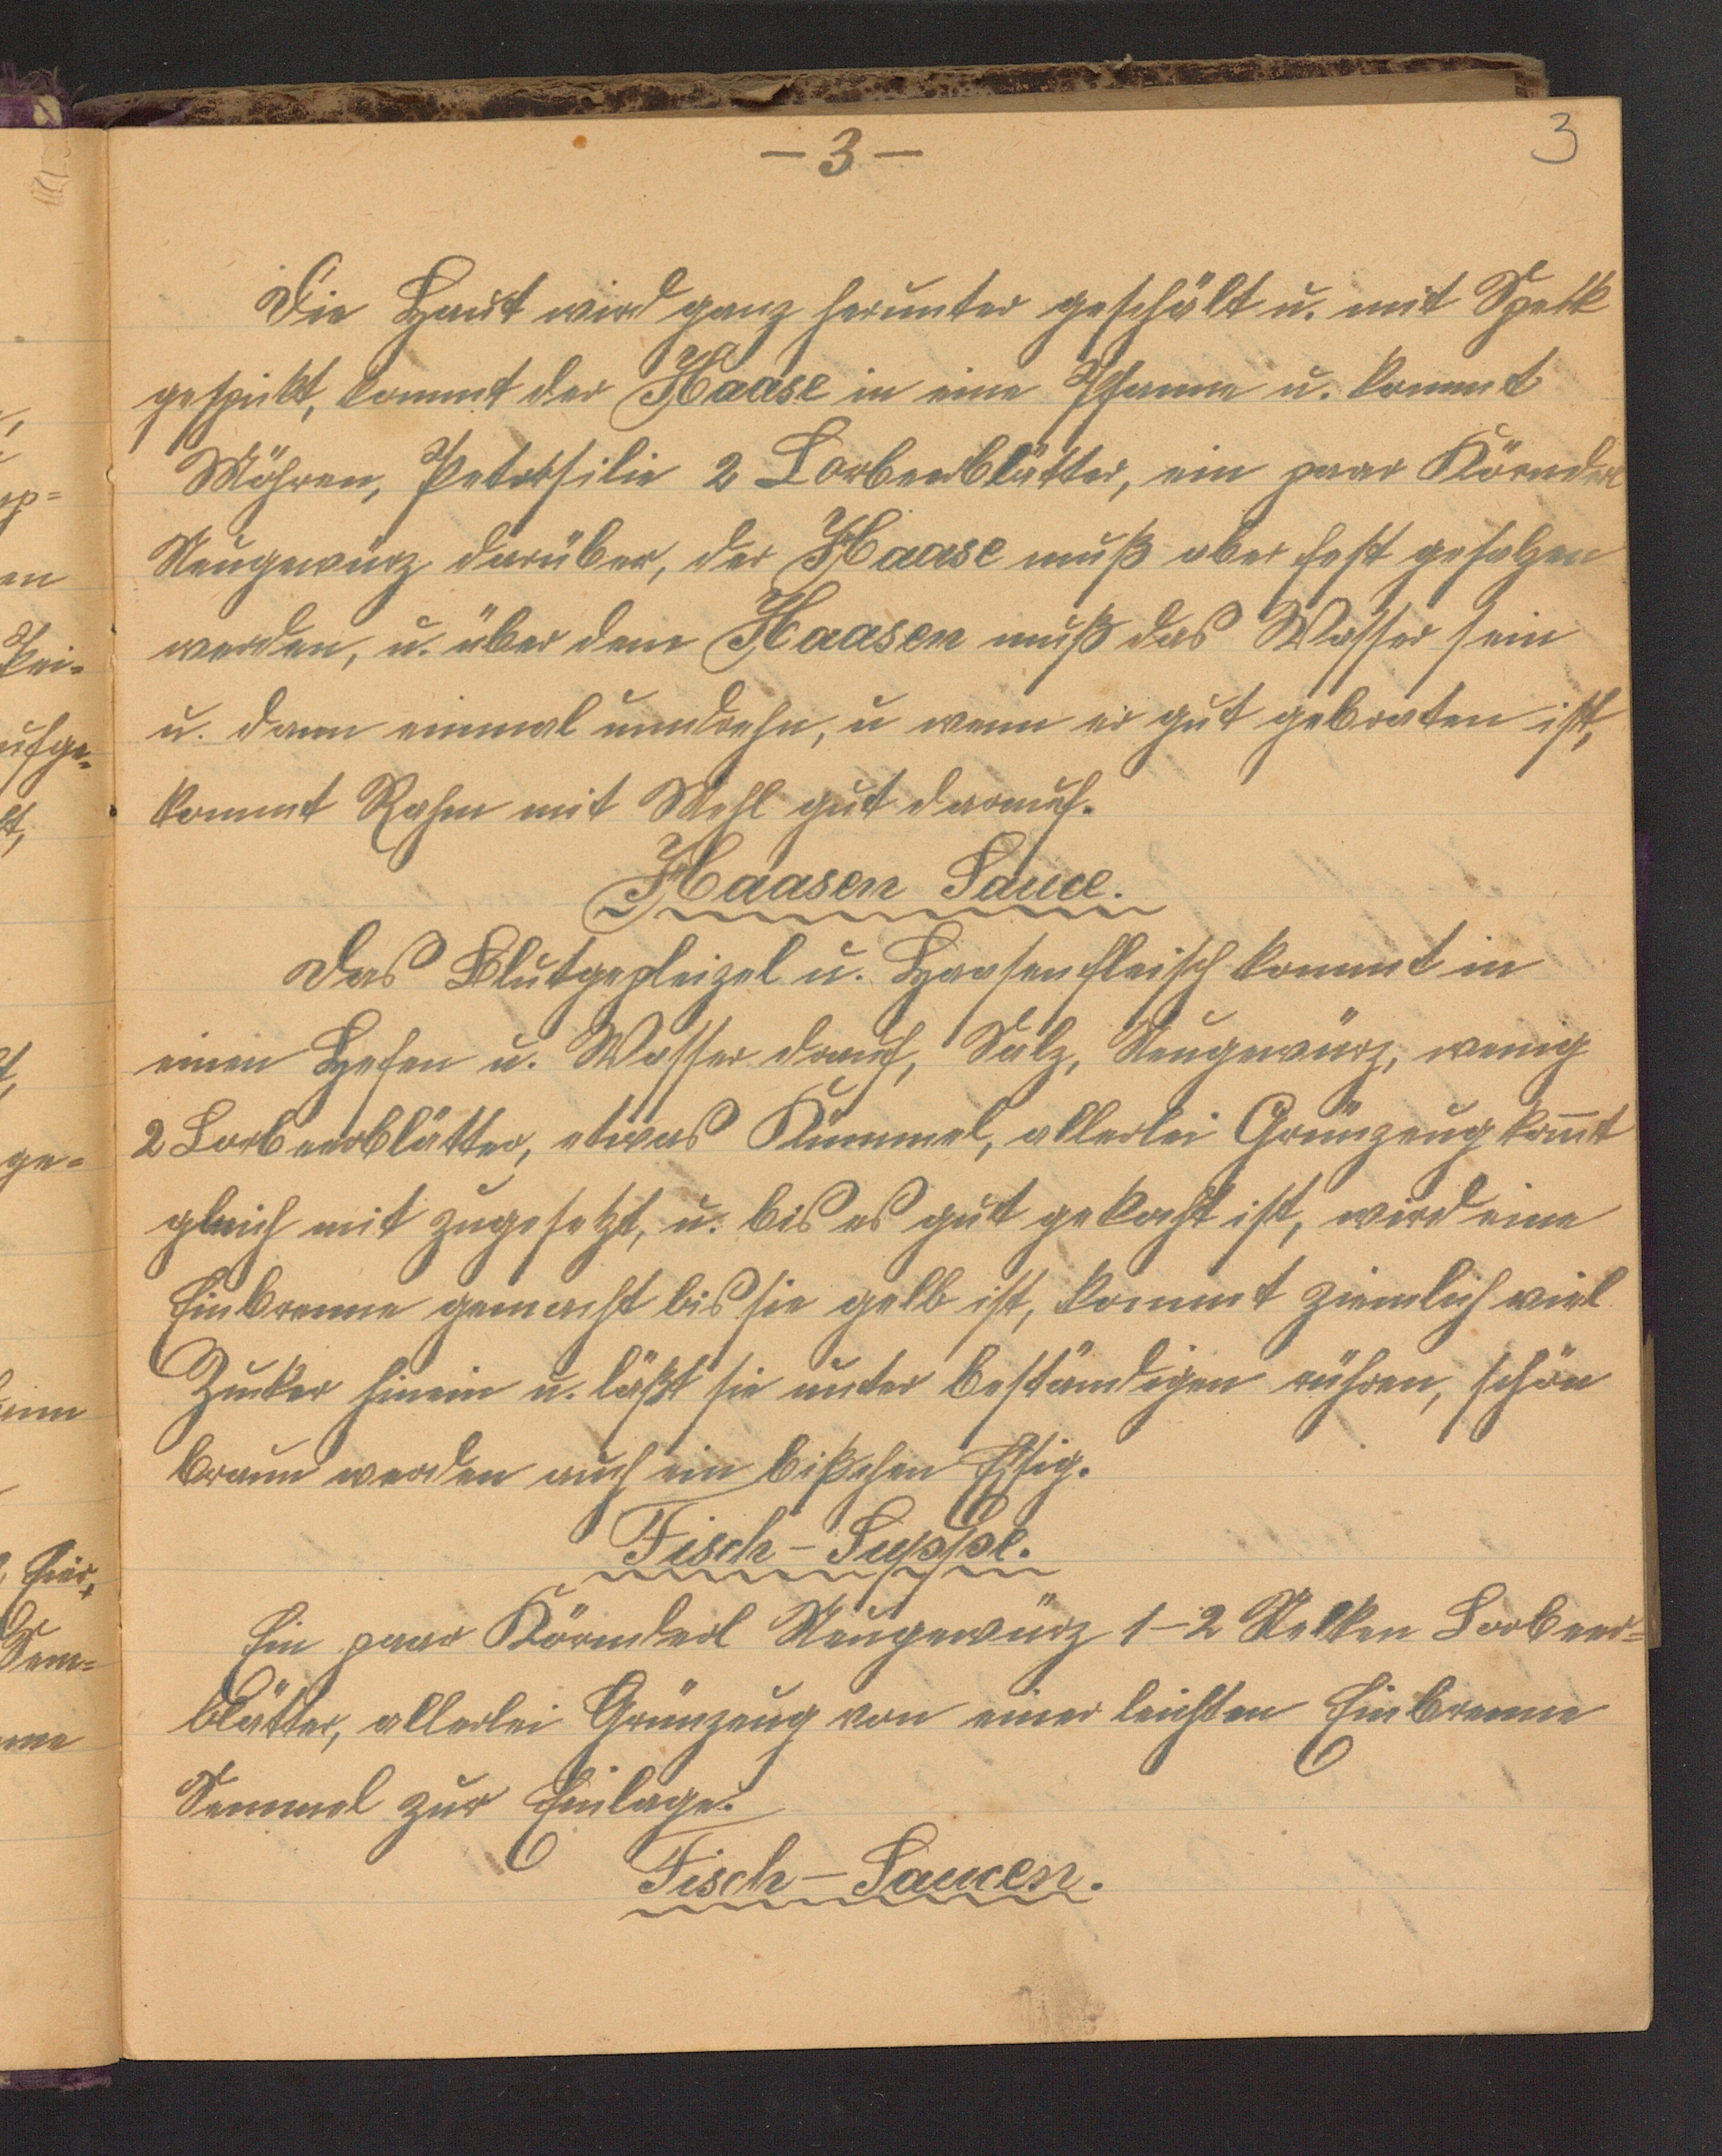 - 3 -
3
Die Haut wird ganz herunter geschält u. mit Speck
gespickt, kommt der Haase in eine Pfanne u. kommt
Möhren, Petersilie 2 Lorbeerblätter, ein paar Körnderl
Neugewürz darüber, der Haase muß aber fest gesalzen
werden, u. über dem Haasen muß das Wasser sein
u. dann einmal umdrehn, u wenn er gut gebraten ist,
kommt Rahm mit Mehl gut darauf.
Haasen Sauce.
Das u. Haasenfleisch kommt in
einen Hefen u. Wasser drauf, Salz, Neugewürz, wenig
2 Lorbeerblätter, etwas Kümmel, allerlei Grünzeug kom̅t
gleich mit zugesetzt, u. bis es gut gekocht ist, wird eine
Einbrenne gemacht bis sie gelb ist, kommt ziemlich viel
Zucker hinein u. läßt sie unter beständigen rühren, schön
braun werden auch ein bißchen Essig.
Fisch-Suppe.
Ein paar Körnderl Neugewürz 1-2 Nelken Lorbeer=
blätter, allerlei Grünzeug von einer leichten Einbrenne
Semmel zur Einlage.
Fisch-Saucen.